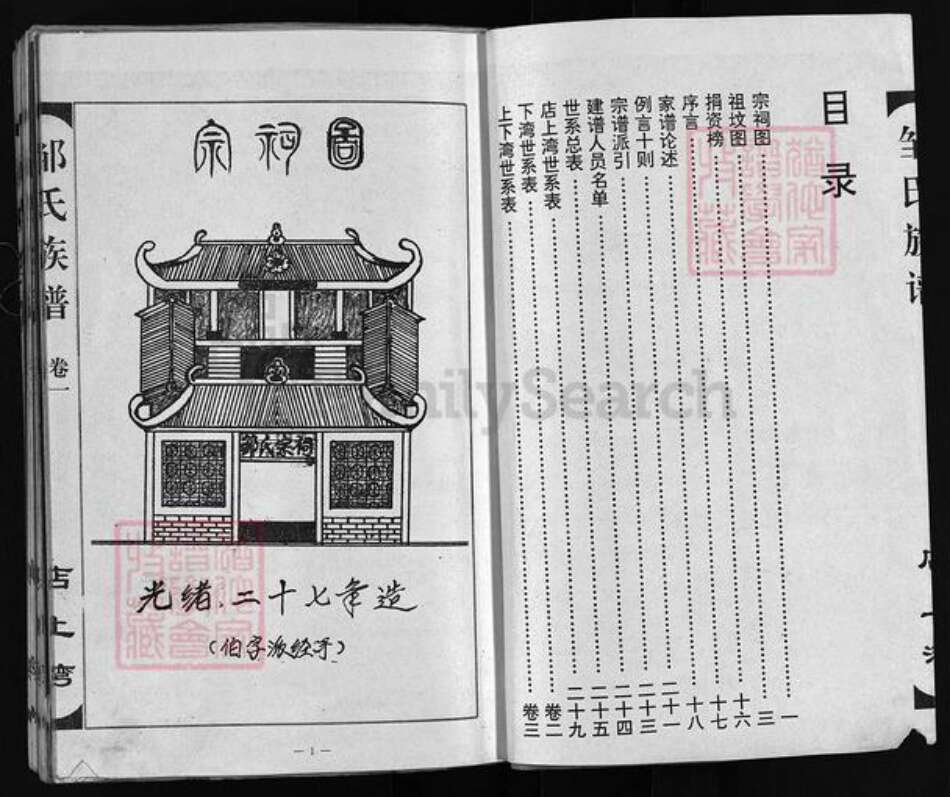 邹氏族谱
目录
宗祠图……一
祖坟图……三
捐资榜……十六
序言……十七
家谱论述……十八
例言十则……二十一
宗谱派引……二十三
建谱人员名单……二十四
世系总表……二十五
店上湾世系表……二十九
下湾世系表……卷二
上下湾世系表……卷三
猶他家
譜學會
收藏
宗祠圖
邹氏宗祠
光绪.二十七年造
(伯字派经手)
猶他家
譜學會
收藏
—1—
邹氏族谱 卷一 店上湾
FamilySearch